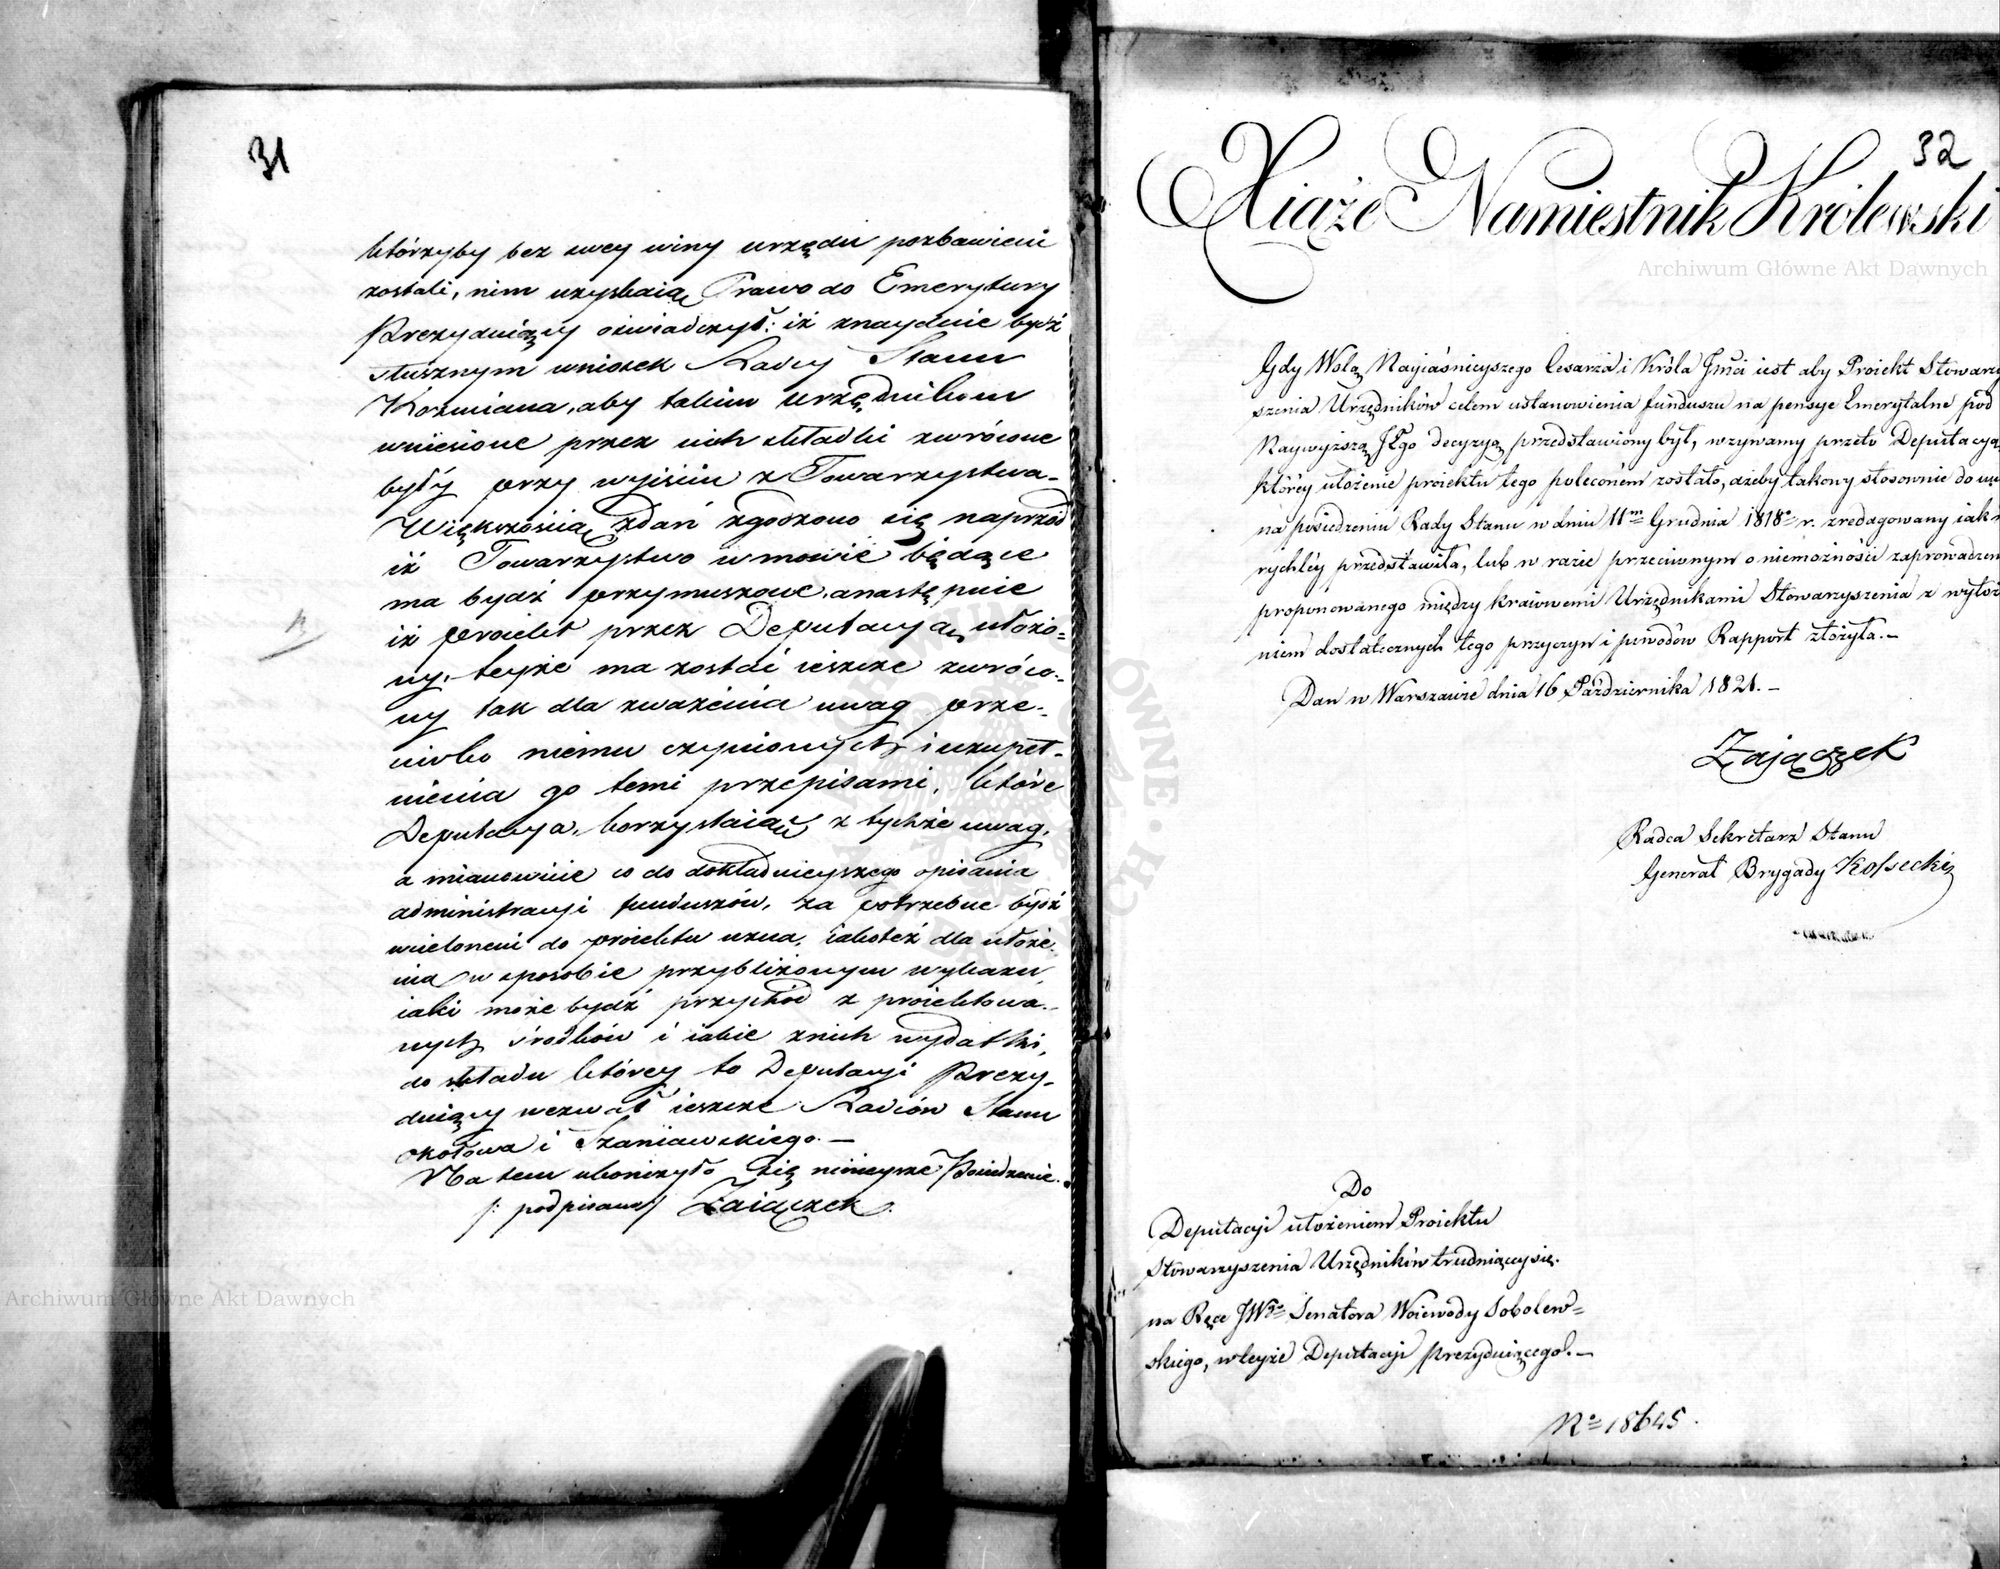 31
którzyby bez swey winy urzędu pozbawieni
zostali, nim uzyskaią Prawo do Emerytury
Prezyduiący oświadczył: iż znayduie bydź
słusznym wniosek Radcy Stanu
Koźmiana, aby takim urzędnikom
wniesione przez nich składki zwrócone
były przy wyiściu z Towarzystwa_
Większością zdań zgodzono się naprzód
iż Towarzystwo w mowie będące
ma bydź przymuszone, a następnie
iż proiekt przez Deputacyą ułożo=
ny, teyże ma zostać ieszcze zwróco=
ny tak dla zważenia uwag prze=
ciwko niemu czynionych i uzupeł=
nienia go temi przepisami, które
Deputacya, korzystaiąc z tychże uwag,
a mianowicie co do dokładnieyszego opisania
administracyi funduszów, za potrzebne bydź
wcielonemi do proiektu uzna, iakoteż dla ułoże=
nia w sposobie przybliżonym wykazu,
iaki może bydź przychód z proiektowa=
nych środków i iakie z nich wydatki,
do składu którey to Deputacyi Prezy=
duiący wezwał ieszcze Radców Stanu
Okołowa i Szaniawskiego. —
Na tem ukończyło się ninieysze Posiedzenie.
/: podpisano/ Zaiączek
32
Xiąże Namiestnik Królewski
Gdy Wolą Nayiaśnieyszego Cesarza i Króla Jmći iest aby Proiekt Stowarzy
szenia Urzędników celem ustanowienia funduszu na pensye Emerytalne pod
Naywyższą JEgo decyzyą przedstawiony był, wzywamy przeto Deputacyą
którey ułożenie proiektu tego poleconem zostało, ażeby takowy stosownie do
na posiedzeniu Rady Stanu w dniu 11m Grudnia 1818o r. zredagowany iak
rychley przedstawiła, lub w razie przeciwnym o niemożności zaprowadzen
proponowanego między kraiowemi Urzędnikami Stowarzyszenia z wyłoż
niem dostatecznych tego przyczyn i powodów Rapport złożyła. —
Dan w Warszawie dnia 16 Października 1821. —
Zajączek
Radca Sekretarz Stanu
Generał Brygady Kossecki
Do
Deputacyi ułożeniem Proiektu
Stowarzyszenia Urzędników trudniącey się.
na Ręce JWgo Senatora Woiewody Sobolew=
skiego, w teyże Deputacyi Prezyduiącego. —
No 18645.
Archiwum Główne Akt Dawnych
Archiwum Główne Akt Dawnych